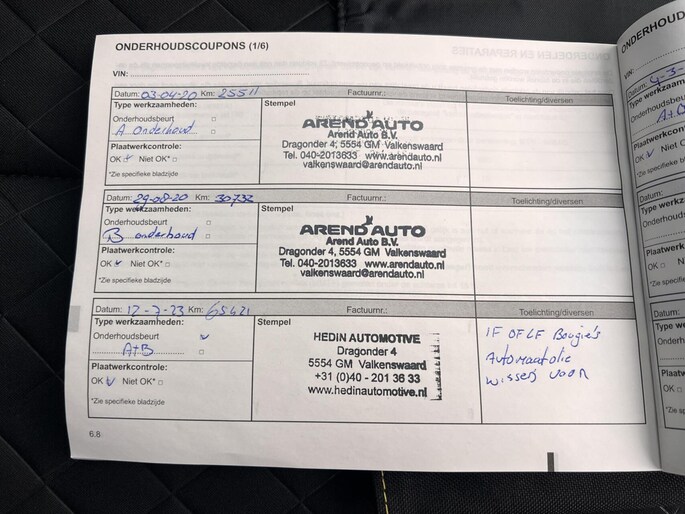 ONDERHOUDSCOUPONS (1/6)
VIN:
Datum: 03-04-20 Km: 25511 Factuurnr.: Toelichting/diversen
Type werkzaamheden: Stempel
Onderhoudsbeurt
A onderhoud
Plaatwerkcontrole:
OK Niet OK*
*Zie specifieke bladzijde
AREND AUTO
Arend Auto B.V.
Dragonder 4, 5554 GM Valkenswaard
Tel. 040-2013633 www.arendauto.nl
valkenswaard@arendauto.nl
Datum: 29-08-20 Km: 30732 Factuurnr.: Toelichting/diversen
Type werkzaamheden: Stempel
Onderhoudsbeurt
B onderhoud
Plaatwerkcontrole:
OK Niet OK*
*Zie specifieke bladzijde
AREND AUTO
Arend Auto B.V.
Dragonder 4, 5554 GM Valkenswaard
Tel. 040-2013633 www.arendauto.nl
valkenswaard@arendauto.nl
Datum: 12-7-23 Km: 65421 Factuurnr.: Toelichting/diversen
Type werkzaamheden: Stempel
Onderhoudsbeurt
A+B
Plaatwerkcontrole:
OK Niet OK*
*Zie specifieke bladzijde
HEDIN AUTOMOTIVE
Dragonder 4
5554 GM Valkenswaard
+31 (0)40 - 201 36 33
www.hedinautomotive.nl
IF OF LF Bougie's
wissers voor
6.8
ONDERHOUD
VIN:
Datum: 4-3-
Type werkzaam
Onderhoudsbeu
A+B
Plaatwerkcontro
OK Niet OK
*Zie specifieke blad
Datum:
Type werkzaam
Onderhoudsbeu
Plaatwerkcont
OK Niet OK
*Zie specifieke bla
Datum:
Type werkza
Onderhoudsb
Plaatwerkco
OK Niet
*Zie specifieke